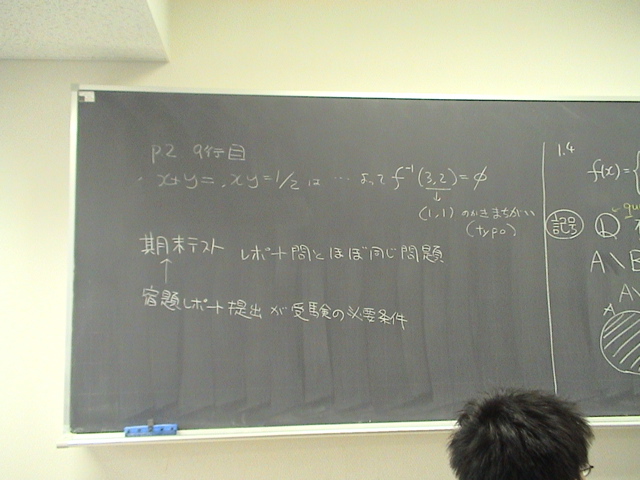 p2 9行目
x+y= , xy=1/2 は … よって f⁻¹(3,2)=φ
↓
(1,1) のかきまちがい
(typo)
期末テスト レポート問とほぼ同じ問題
↑
宿題レポート提出が受験の必要条件
1.4
f(x)={
記号
A\B
A\
A